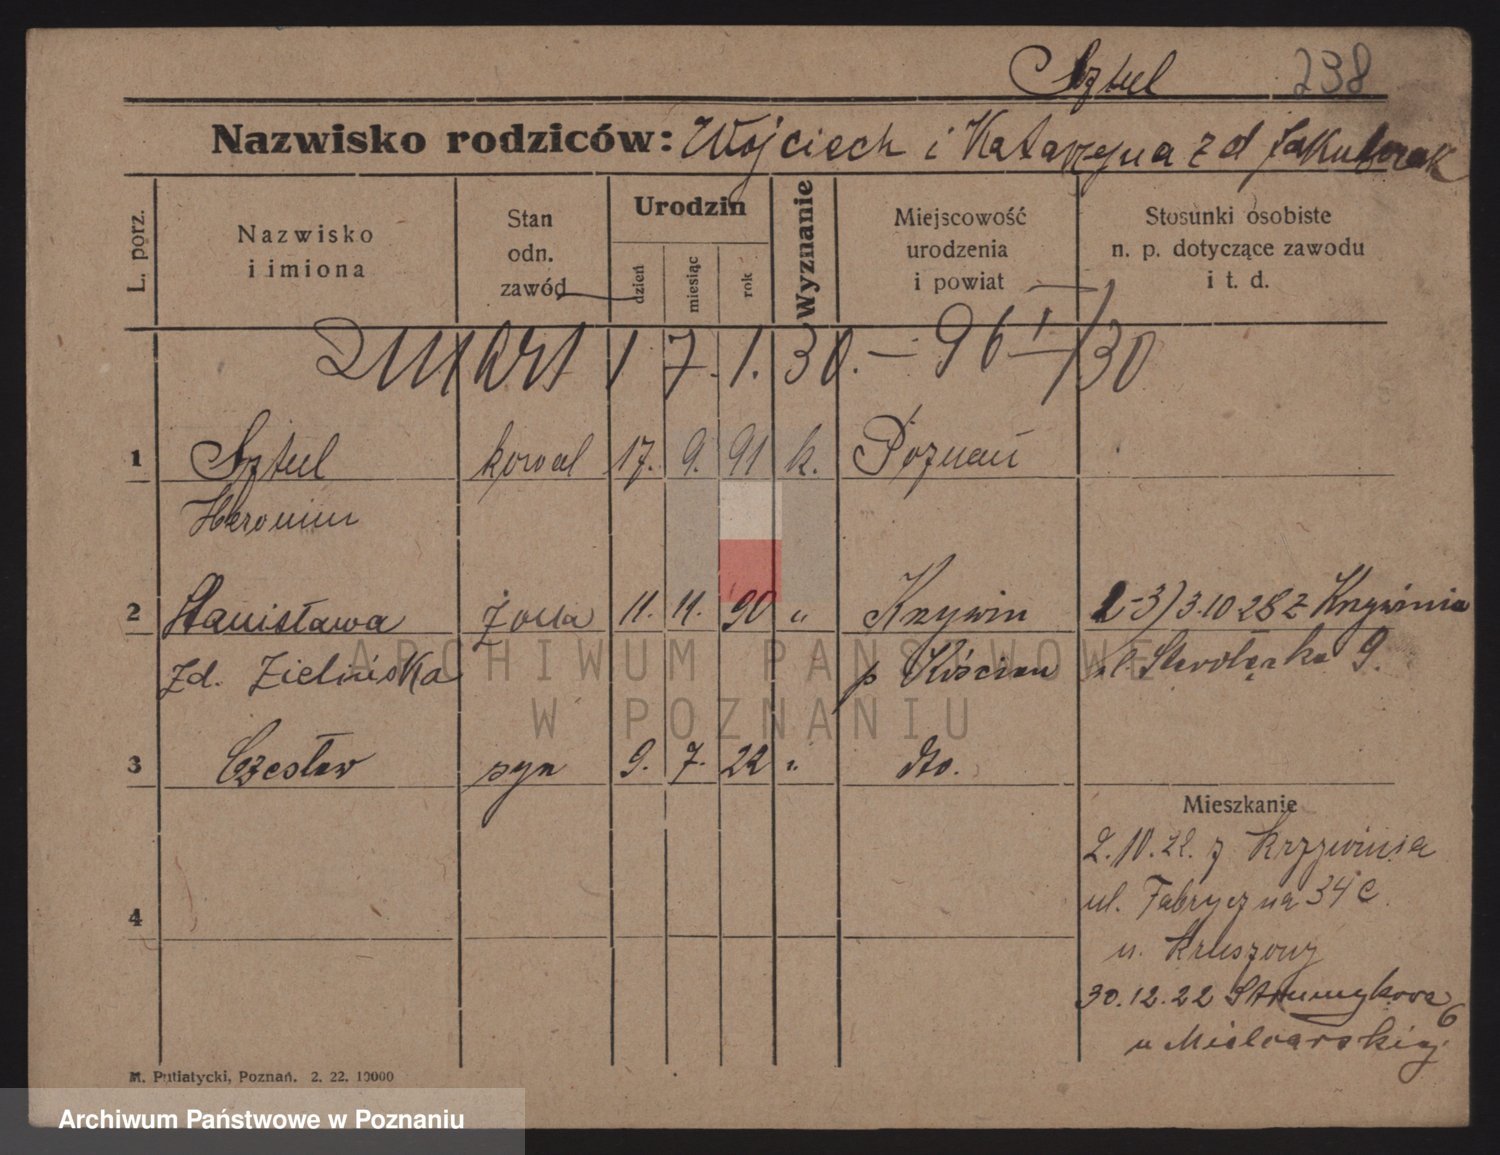 Sztul 238
Nazwisko rodziców: Wojciech i Katarzyna z d Jakubczak
L. porz.
Nazwisko i imiona
Stan odn. zawód
Urodzin
dzień miesiąc rok
Wyznanie
Miejscowość urodzenia i powiat
Stosunki osobiste n. p. dotyczące zawodu i t. d.
zmarł 17.1.30. — 96 I/30
1 Sztul kowal 17. 9. 91 k. Poznań
Heronim
2 Stanisława żona 11. 11. 90 " Krzywin 2-3) 3.10 28 z Krzywinia
zd. Zielińska p Kościan ul. 9.
3 Czesław syn 9. 7. 22 " dto.
Mieszkanie
2.10.22. z Krzywinia
4 ul. Fabryczna 34 c
u. Kruszony
30.12.22 Strumykowa 6
u Mielcarskiej
M. Putiatycki, Poznań. 2. 22. 10000
ARCHIWUM PAŃSTWOWE
W POZNANIU
Archiwum Państwowe w Poznaniu